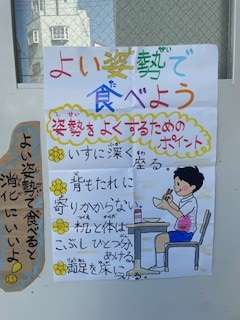 よい姿勢で
食べよう
姿勢をよくするための
ポイント
いすに深く
座る。
背もたれに
寄りかからない。
机と体は
こぶしひとつ分
あける。
満足を床に
つける。
よい姿勢で食べると
消化にいいよ